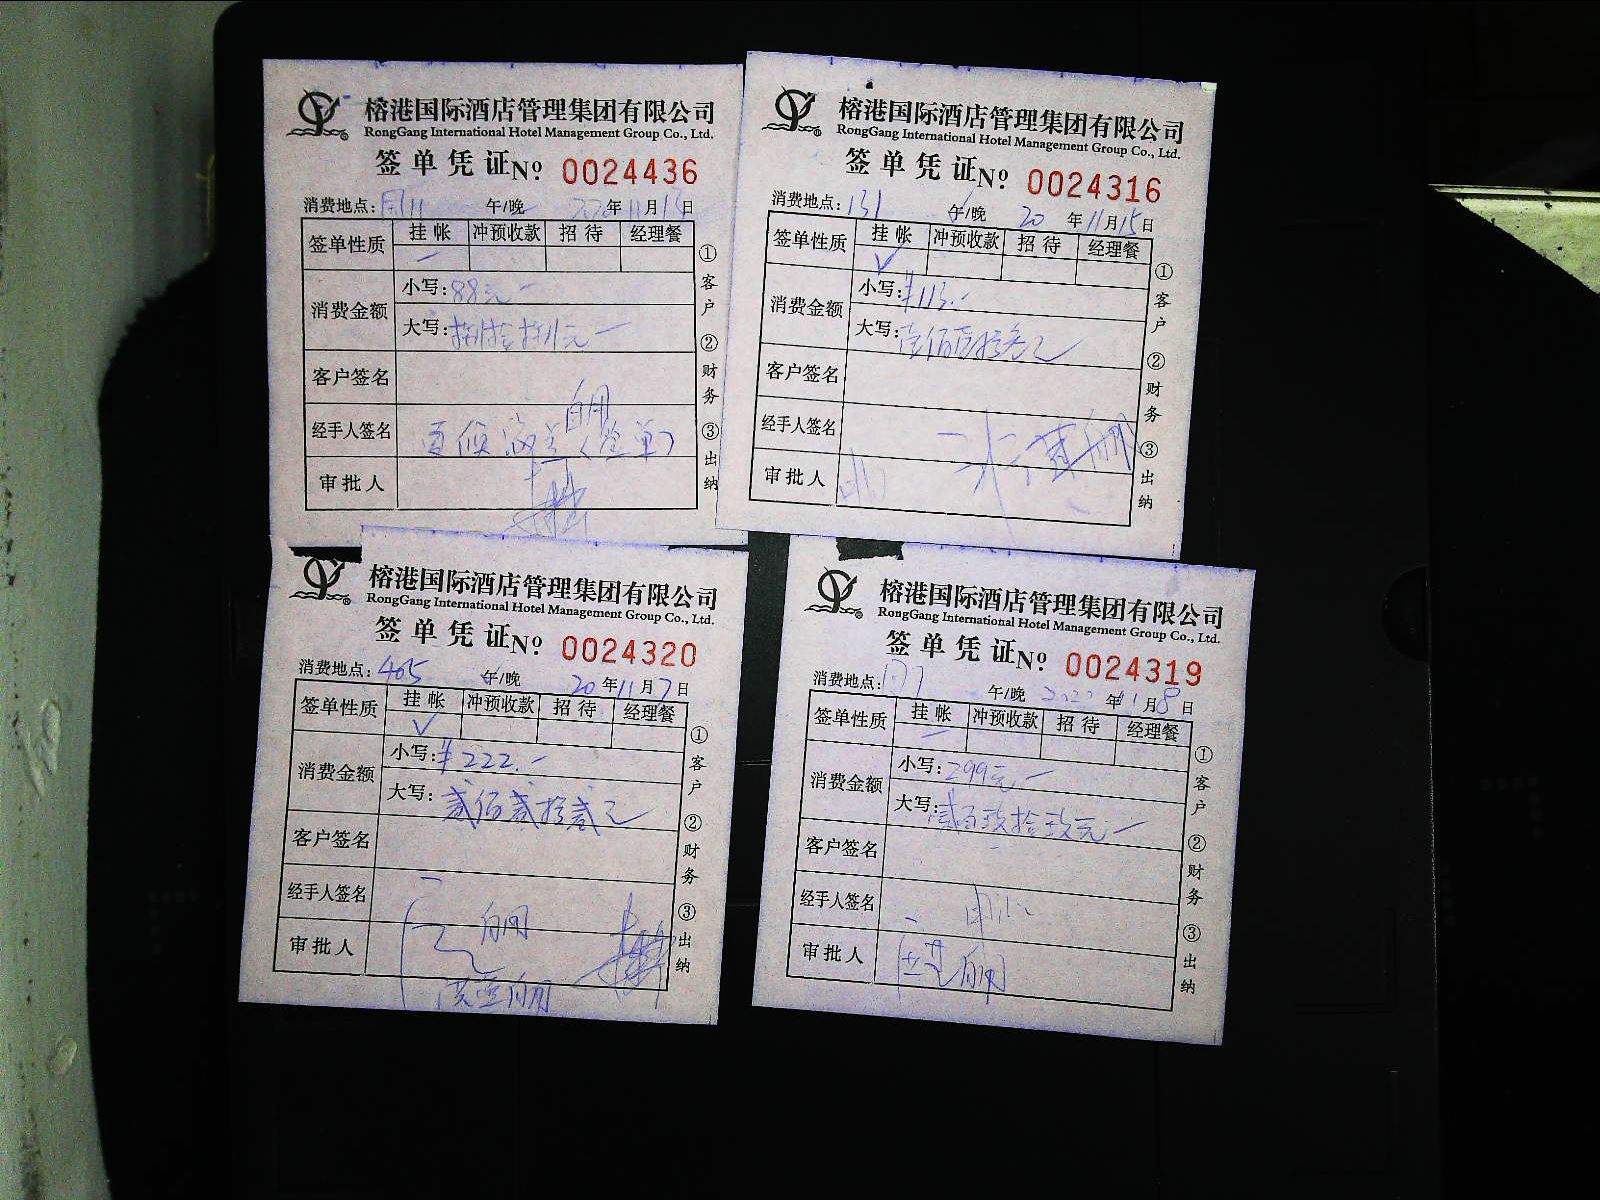 榕港国际酒店管理集团有限公司
RongGang International Hotel Management Group Co., Ltd.
签单凭证 Nº 0024436
消费地点: 午/晚 年11月 日
签单性质 挂帐 冲预收款 招待 经理餐
消费金额
小写:88元
大写:捌拾捌元
客户签名
经手人签名
审批人
①客户 ②财务 ③出纳
榕港国际酒店管理集团有限公司
RongGang International Hotel Management Group Co., Ltd.
签单凭证 Nº 0024316
消费地点:131 午/晚 20 年11月15日
签单性质 挂帐 冲预收款 招待 经理餐
✓
消费金额
小写:¥113.-
大写:壹佰壹拾叁元
客户签名
经手人签名
审批人
①客户 ②财务 ③出纳
榕港国际酒店管理集团有限公司
RongGang International Hotel Management Group Co., Ltd.
签单凭证 Nº 0024320
消费地点:405 午/晚 20 年11月7日
签单性质 挂帐 冲预收款 招待 经理餐
✓
消费金额
小写:¥222.-
大写:贰佰贰拾贰元
客户签名
经手人签名
审批人
①客户 ②财务 ③出纳
榕港国际酒店管理集团有限公司
RongGang International Hotel Management Group Co., Ltd.
签单凭证 Nº 0024319
消费地点: 午/晚 2022年11月8日
签单性质 挂帐 冲预收款 招待 经理餐
消费金额
小写:299元
大写:贰百玖拾玖元
客户签名
经手人签名
审批人
①客户 ②财务 ③出纳